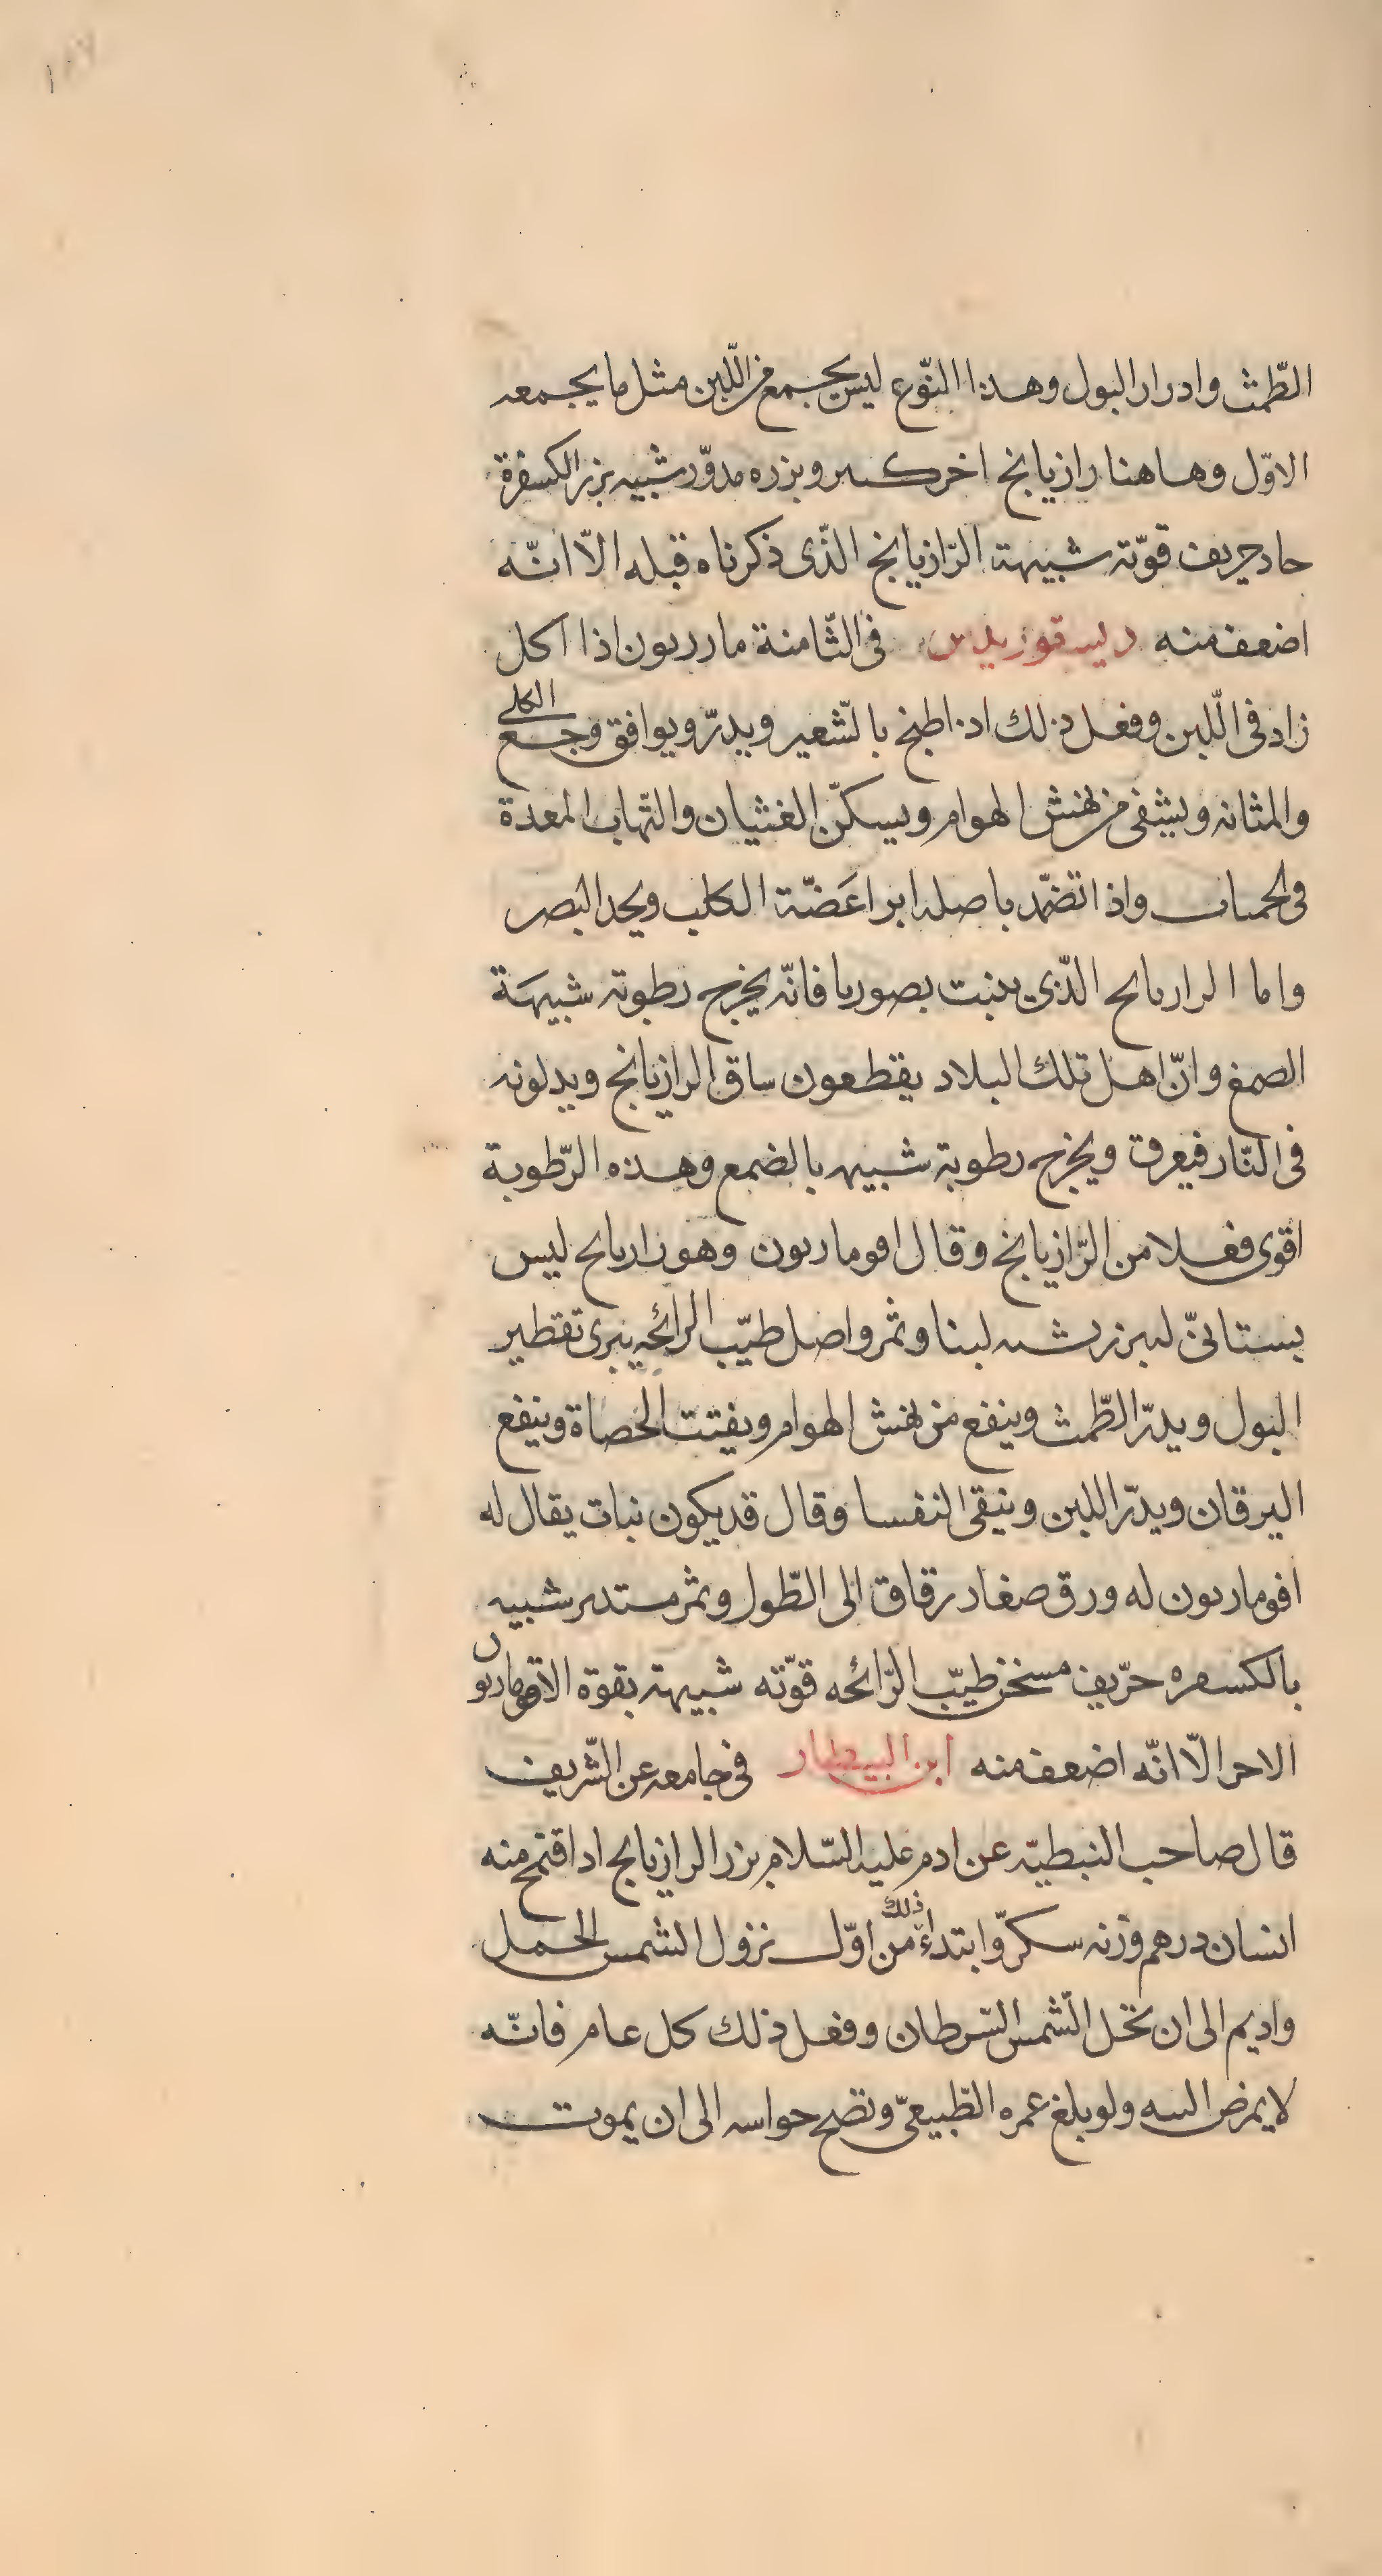 الطّمث وادرار البول وهذا النّوع ليس يجمع من اللّبن مثل ما يجمعه
الاوّل وها هنا رازيانج اخر كبير وبزره مدوّر شبيه ببزر الكسفرة
حاد حريف قوّته شبيهة الرّازيانج الذّى ذكرناه قبله الاّ انّه
اضعف منه ديسقوريدس فى الثّامنة ماردبون اذا اكل
زاد فى اللّبن وفعل ذلك اذا طبخ بالشّعير ويدرّ ويوافق وجع الكلى
والمثانه ويشفى من نهش الهوام ويسكّن الغثيان والتّهاب المعدة
فى الحميات واذا تضمّد باصله ابرا عَضّة الكلب ويحد البصر
واما الرازيانج الذّى ينبت بصوريا فانّه يخرج رطوبته شبيهَة
الصمغ وانّ اهل تلك البلاد يقطعون ساق الرازيانج ويدلونه
فى النّار فيعرق ويخرج رطوبة شبيه بالضمع وهذه الرّطوبة
اقوى فعلا من الرّازيانج وقال افوماربون وهو رازيانج ليس
بستانىّ له بزر يشبه لبنا وثمر واصل طيّب الرائحه يبرى تقطير
البول ويدرّ الطّمث وينفع من نهش الهوام ويفتت الحصاة وينفع
اليرقان ويدرّ اللبن وينقى النفسا وقال قد يكون نبات يقال له
افوماربون له ورق صغار رقاق الى الطّول وثمر مستدير شبيه
بالكسفره حرّيف مسخن طيّب الرّائحه قوّته شبيهة بقوة الافوماربون
الاخر الاّ انّه اضعف منه ابن البيطار فى جامعه عن الشّريف
قال صاحب النبطيّه عن ادم عليه السّلام بزر الرازيانج اذا قتمح منه
انسان درهم وزنه سكرّ وابتداء ذلك من اوّل نزول الشمس الحمل
واديم الى ان تحل الشّمس السّرطان وفعل ذلك كل عام فانّه
لا يمرض البته ولو بلغ عمره الطّبيعىّ وتصح حواسه الى ان يموت